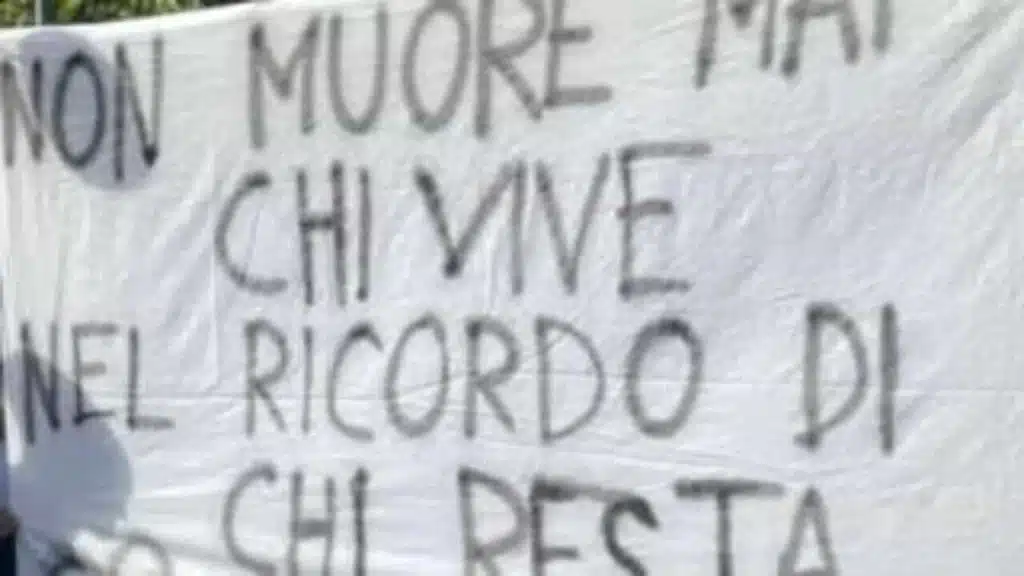 NON MUORE MAI
CHI VIVE
NEL RICORDO DI
CHI RESTA